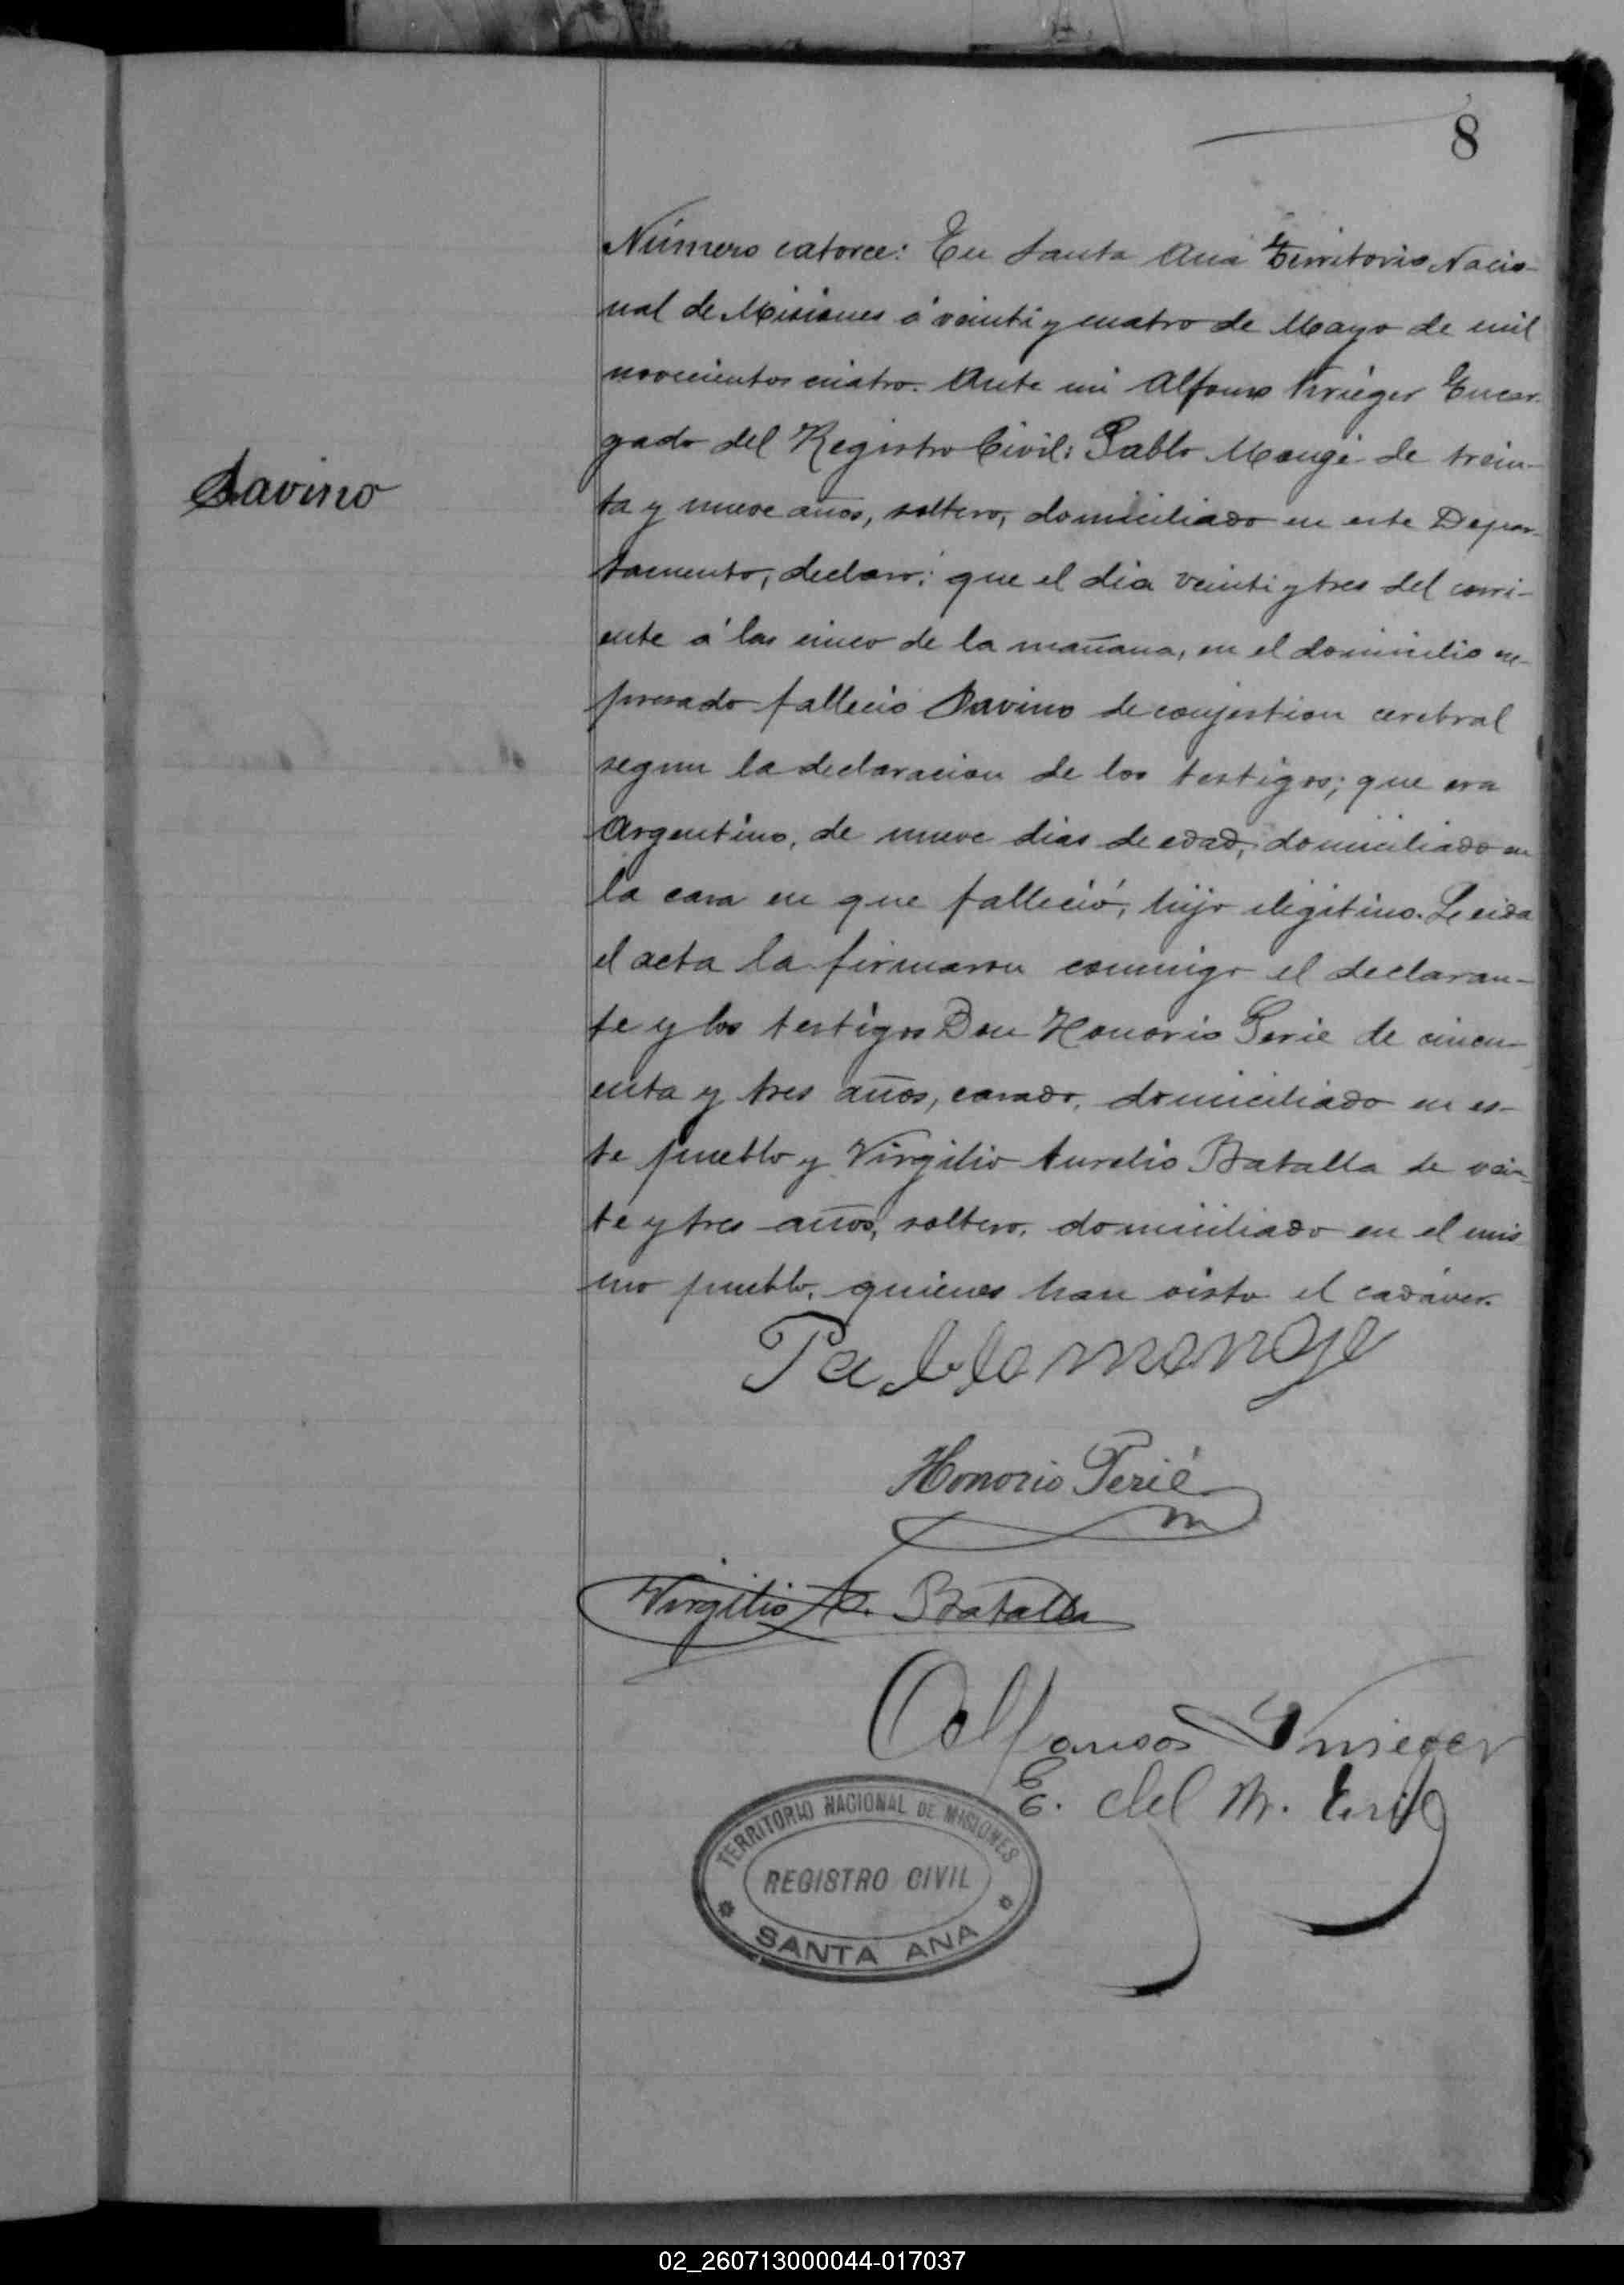 8
Número catorce: En Santa Ana Territorio Nacio-
nal de Misiones á veinti y cuatro de Mayo de mil
novecientos cuatro. Ante mi Alfonso Krieger Encar-
gado del Registro Civil: Pablo Mongé de trein-
Savino
ta y nueve años, soltero, domiciliado en este Depar-
tamento, declaró: que el dia veinti y tres del corri-
ente á las cinco de la mañana, en el domicilio ex-
presado fallecio Savino de conjestion cerebral
segun la declaracion de los testigos; que era
Argentino, de nueve dias de edad, domiciliado en
la casa en que falleció, hijo ilegitimo. Leida
el acta la firmaron conmigo el declaran-
te y los testigos Don Honorio Perié de cincu-
enta y tres años, casado, domiciliado en es-
te pueblo y Virgilio Aurelio Batalla de vein-
te y tres años, soltero, domiciliado en el mis
mo pueblo, quienes han visto el cadáver.
Pablo monge
Honorio Perié
Virgilio A. Batalla
Alfonso Krieger
E. del R. Civil
TERRITORIO NACIONAL DE MISIONES
REGISTRO CIVIL
SANTA ANA
02_260713000044-017037